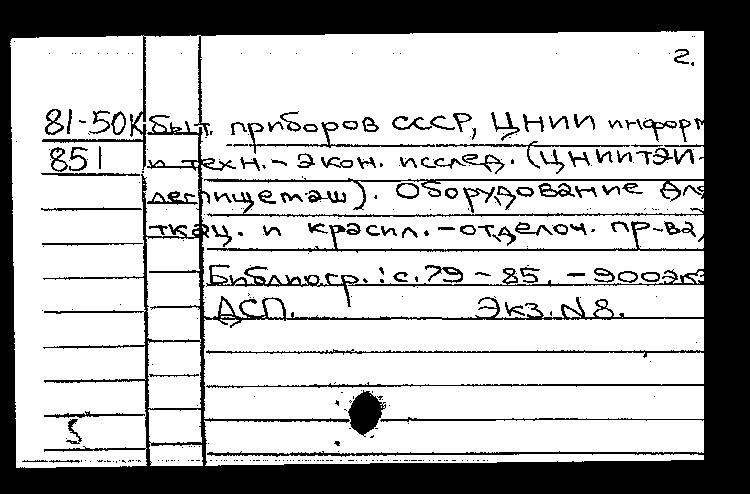 2.
81-50К быт. приборов СССР, ЦНИИ информ
851 и техн.-экон. исслед. (ЦНИИТЭИ-
легпищемаш). Оборудование для
ткац. и красил.-отделоч. пр-ва,
Библиогр.: с. 79-85. - 900экз
ДСП. Экз. N8.
5